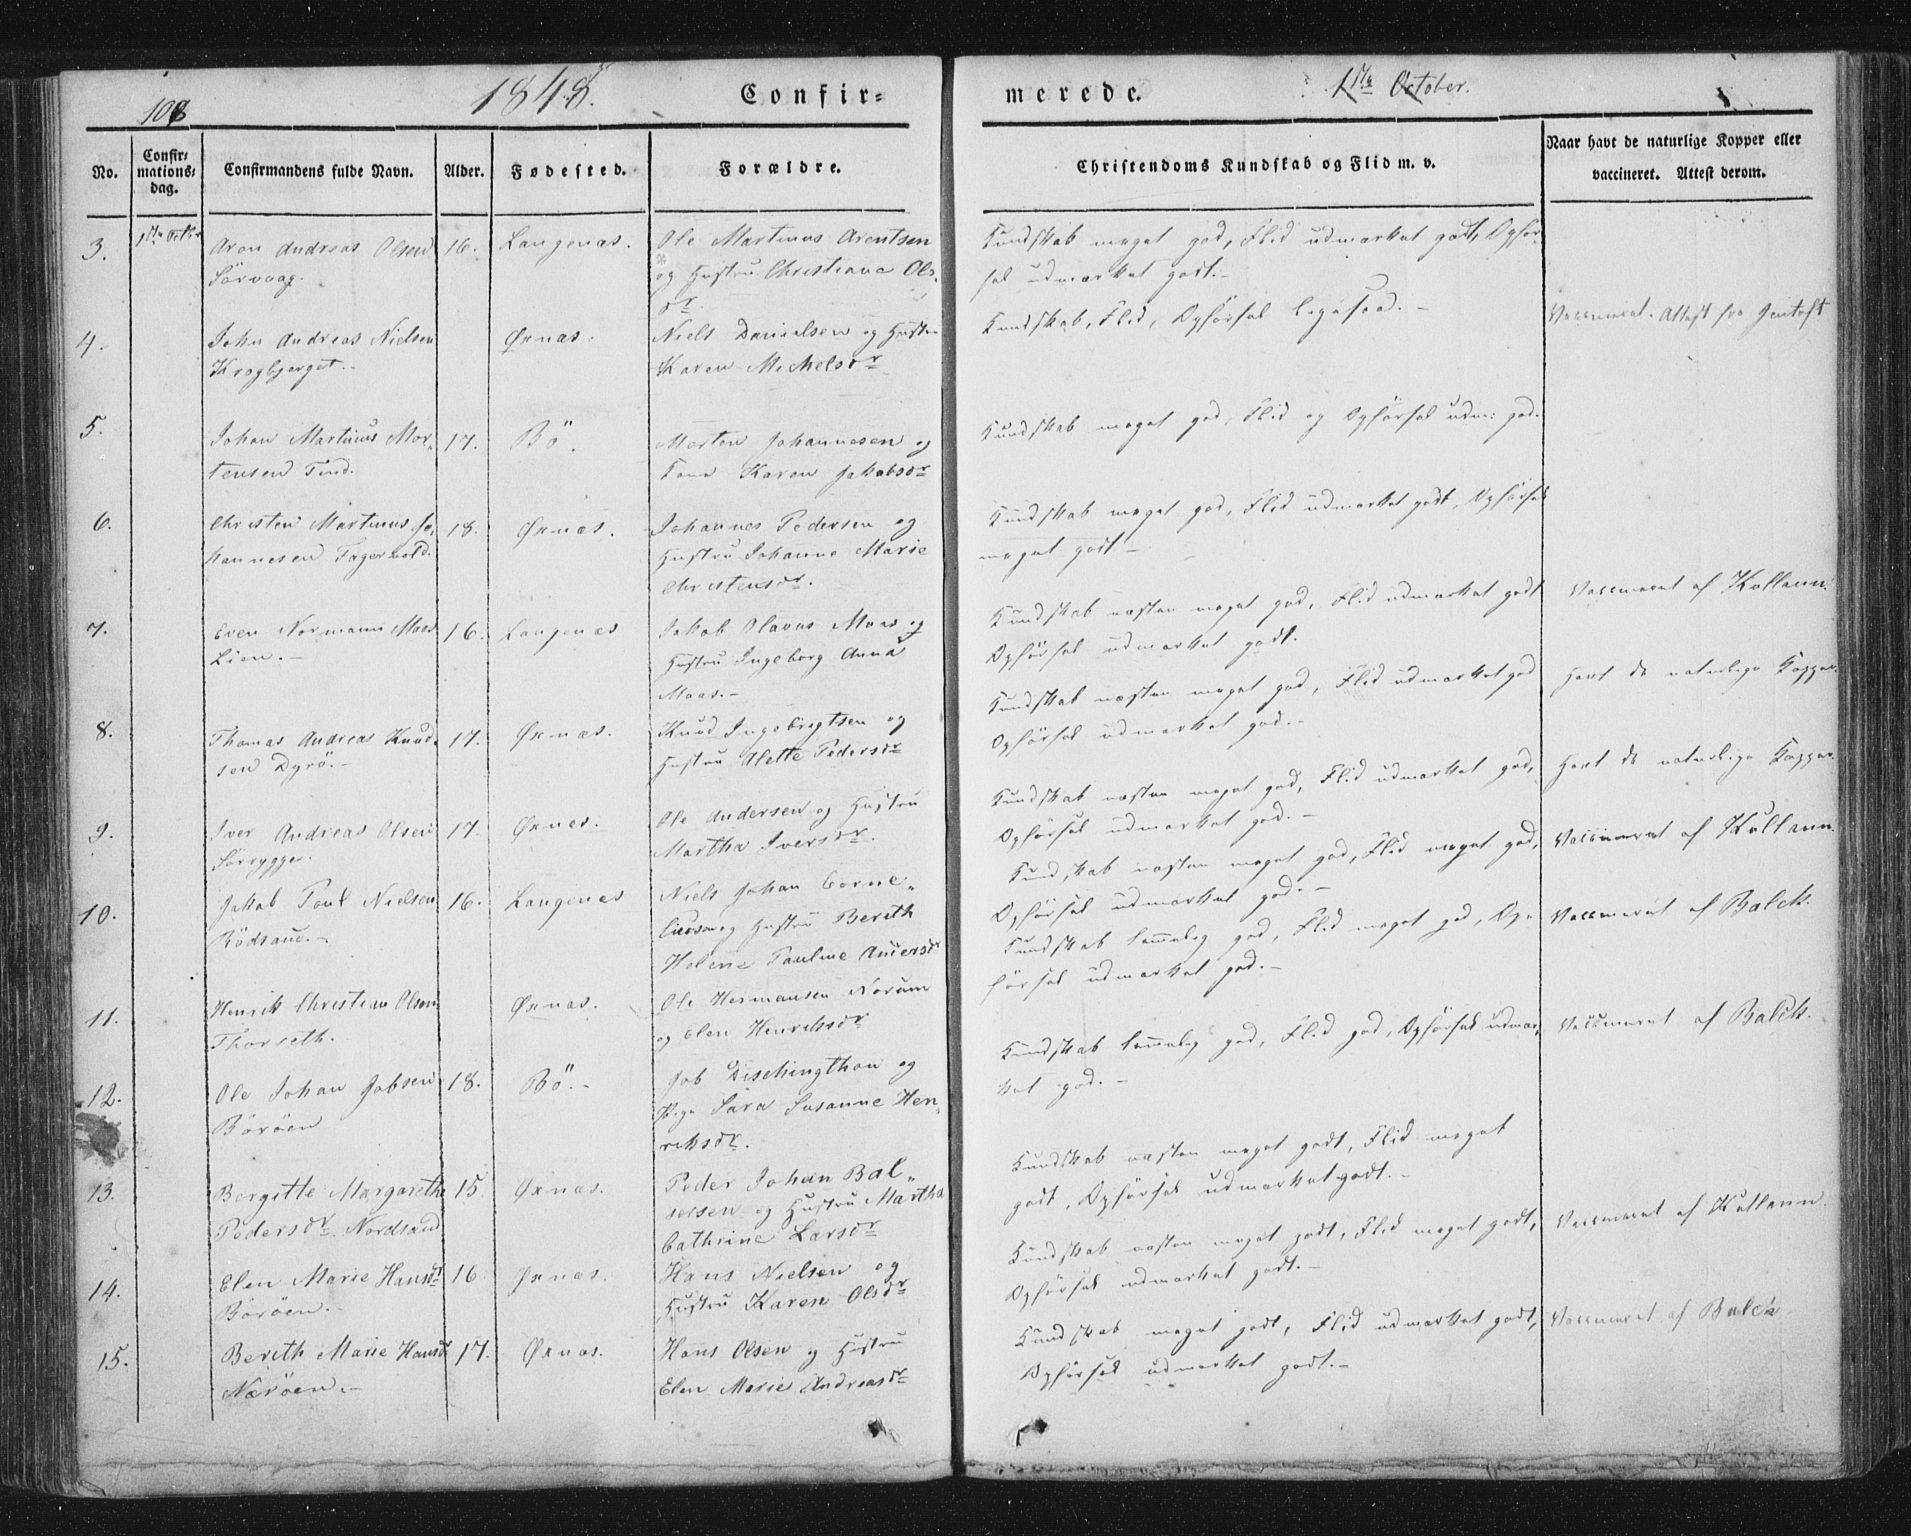 108
1848.
Confir-
merede.
1ste October.
No.
Confir-
mations-
dag.
Confirmandens fulde Navn.
Alder.
Fødested.
Forældre.
Christendoms Kundskab og Flid m. v.
Naar havt de naturlige Kopper eller
vaccineret. Attest derom.
3. 1ste Octbr Aron Andreas Olsen 16. Langenæs. Ole Martinus Arentsen Kundskab meget god, Flid udmærket godt, Opfør-
Sörvaag. og Hustru Christiane Ols- sel udmærket godt.-
dr.
4. John Andreas Nielsen Øxnæs. Niels Danielsen og Hustru Kundskab, Flid, Opførsel ligesaa. - Vaccineret. Attest fra
Krogbjerget.- Karen Michelsdr
5. Johan Martinus Mor- 17. Bö. Morten Johannesen og Kundskab meget god, Flid og Opførsel udm: god.
tensen Tind. Karen Jakobsdr
6. Christen Martinus Jo- 18. Øxnæs. Johannes Pedersen og Kundskab meget god, Flid udmærket godt, Opførsel
hannesen Fagervold. Hustru Johanne Marie meget godt -
Christensdr.
7. Even Normann Maas 16. Langenæs Jakob Olavus Maas og Kundskab næsten meget god, Flid udmærket godt Vaccineret af
Lien.- Hustru Ingeborg Anna Opførsel udmærket godt.
Maas.-
8. Thomas Andreas Knud- 17. Øxnæs. Knud Ingebrigtsen og Kundskab næsten meget god, Flid udmærket god Havt de naturlige Kopper.
sen Dyrö.- Hustru Alette Pedersdr Opførsel udmærket god.-
9. Iver Andreas Olsen 17. Øxnæs. Ole Andersen og Hustru Kundskab næsten meget god, Flid udmærket god, Havt de naturlige Kopper.
Sörrygge. Martha Iversdr. Opførsel udmærket god.-
10. Jakob Poul Nielsen 16. Langenæs Niels Johan Corne- Kundskab næsten meget god, Flid meget god, Vaccineret af
Rödsand.- liusen og Hustru Berith Opførsel udmærket god.-
Helene Pauline Andersdr
11. Henrik Christian Olsen Øxnæs. Ole Hermansen Norum Kundskab temmelig god, Flid meget god, Op- Vaccineret af Balck.
Thorseth. og Elen Henriksdr førsel udmærket god.-
12. Ole Johan Jobsen 18. Bö.- Job og Kundskab temmelig god, Flid god, Opførsel udmær- Vaccineret af Balck.
Böröen Pige Sara Susanne Hen- ket god.-
riksdr.
13. Bergitte Margarethe 15 Øxnæs. Peder Johan Bal- Kundskab næsten meget godt, Flid meget
Pedersdr. Nordsand sersen og Hustru Martha godt, Opførsel udmærket godt.-
Cathrine Larsdr
14. Elen Marie Hansdr 16 Øxnæs. Hans Nielsen og Kundskab næsten meget godt, Flid meget godt, Vaccineret af
Böröen.- Hustru Karen Olsdr Opførsel udmærket godt.-
15. Berith Marie Hansd 17. Øxnæs. Hans Olsen og Hustru Kundskab meget godt, Flid udmærket godt, Vaccineret af Balck
Næröen.- Elen Marie Andreasdr Opførsel udmærket godt.-